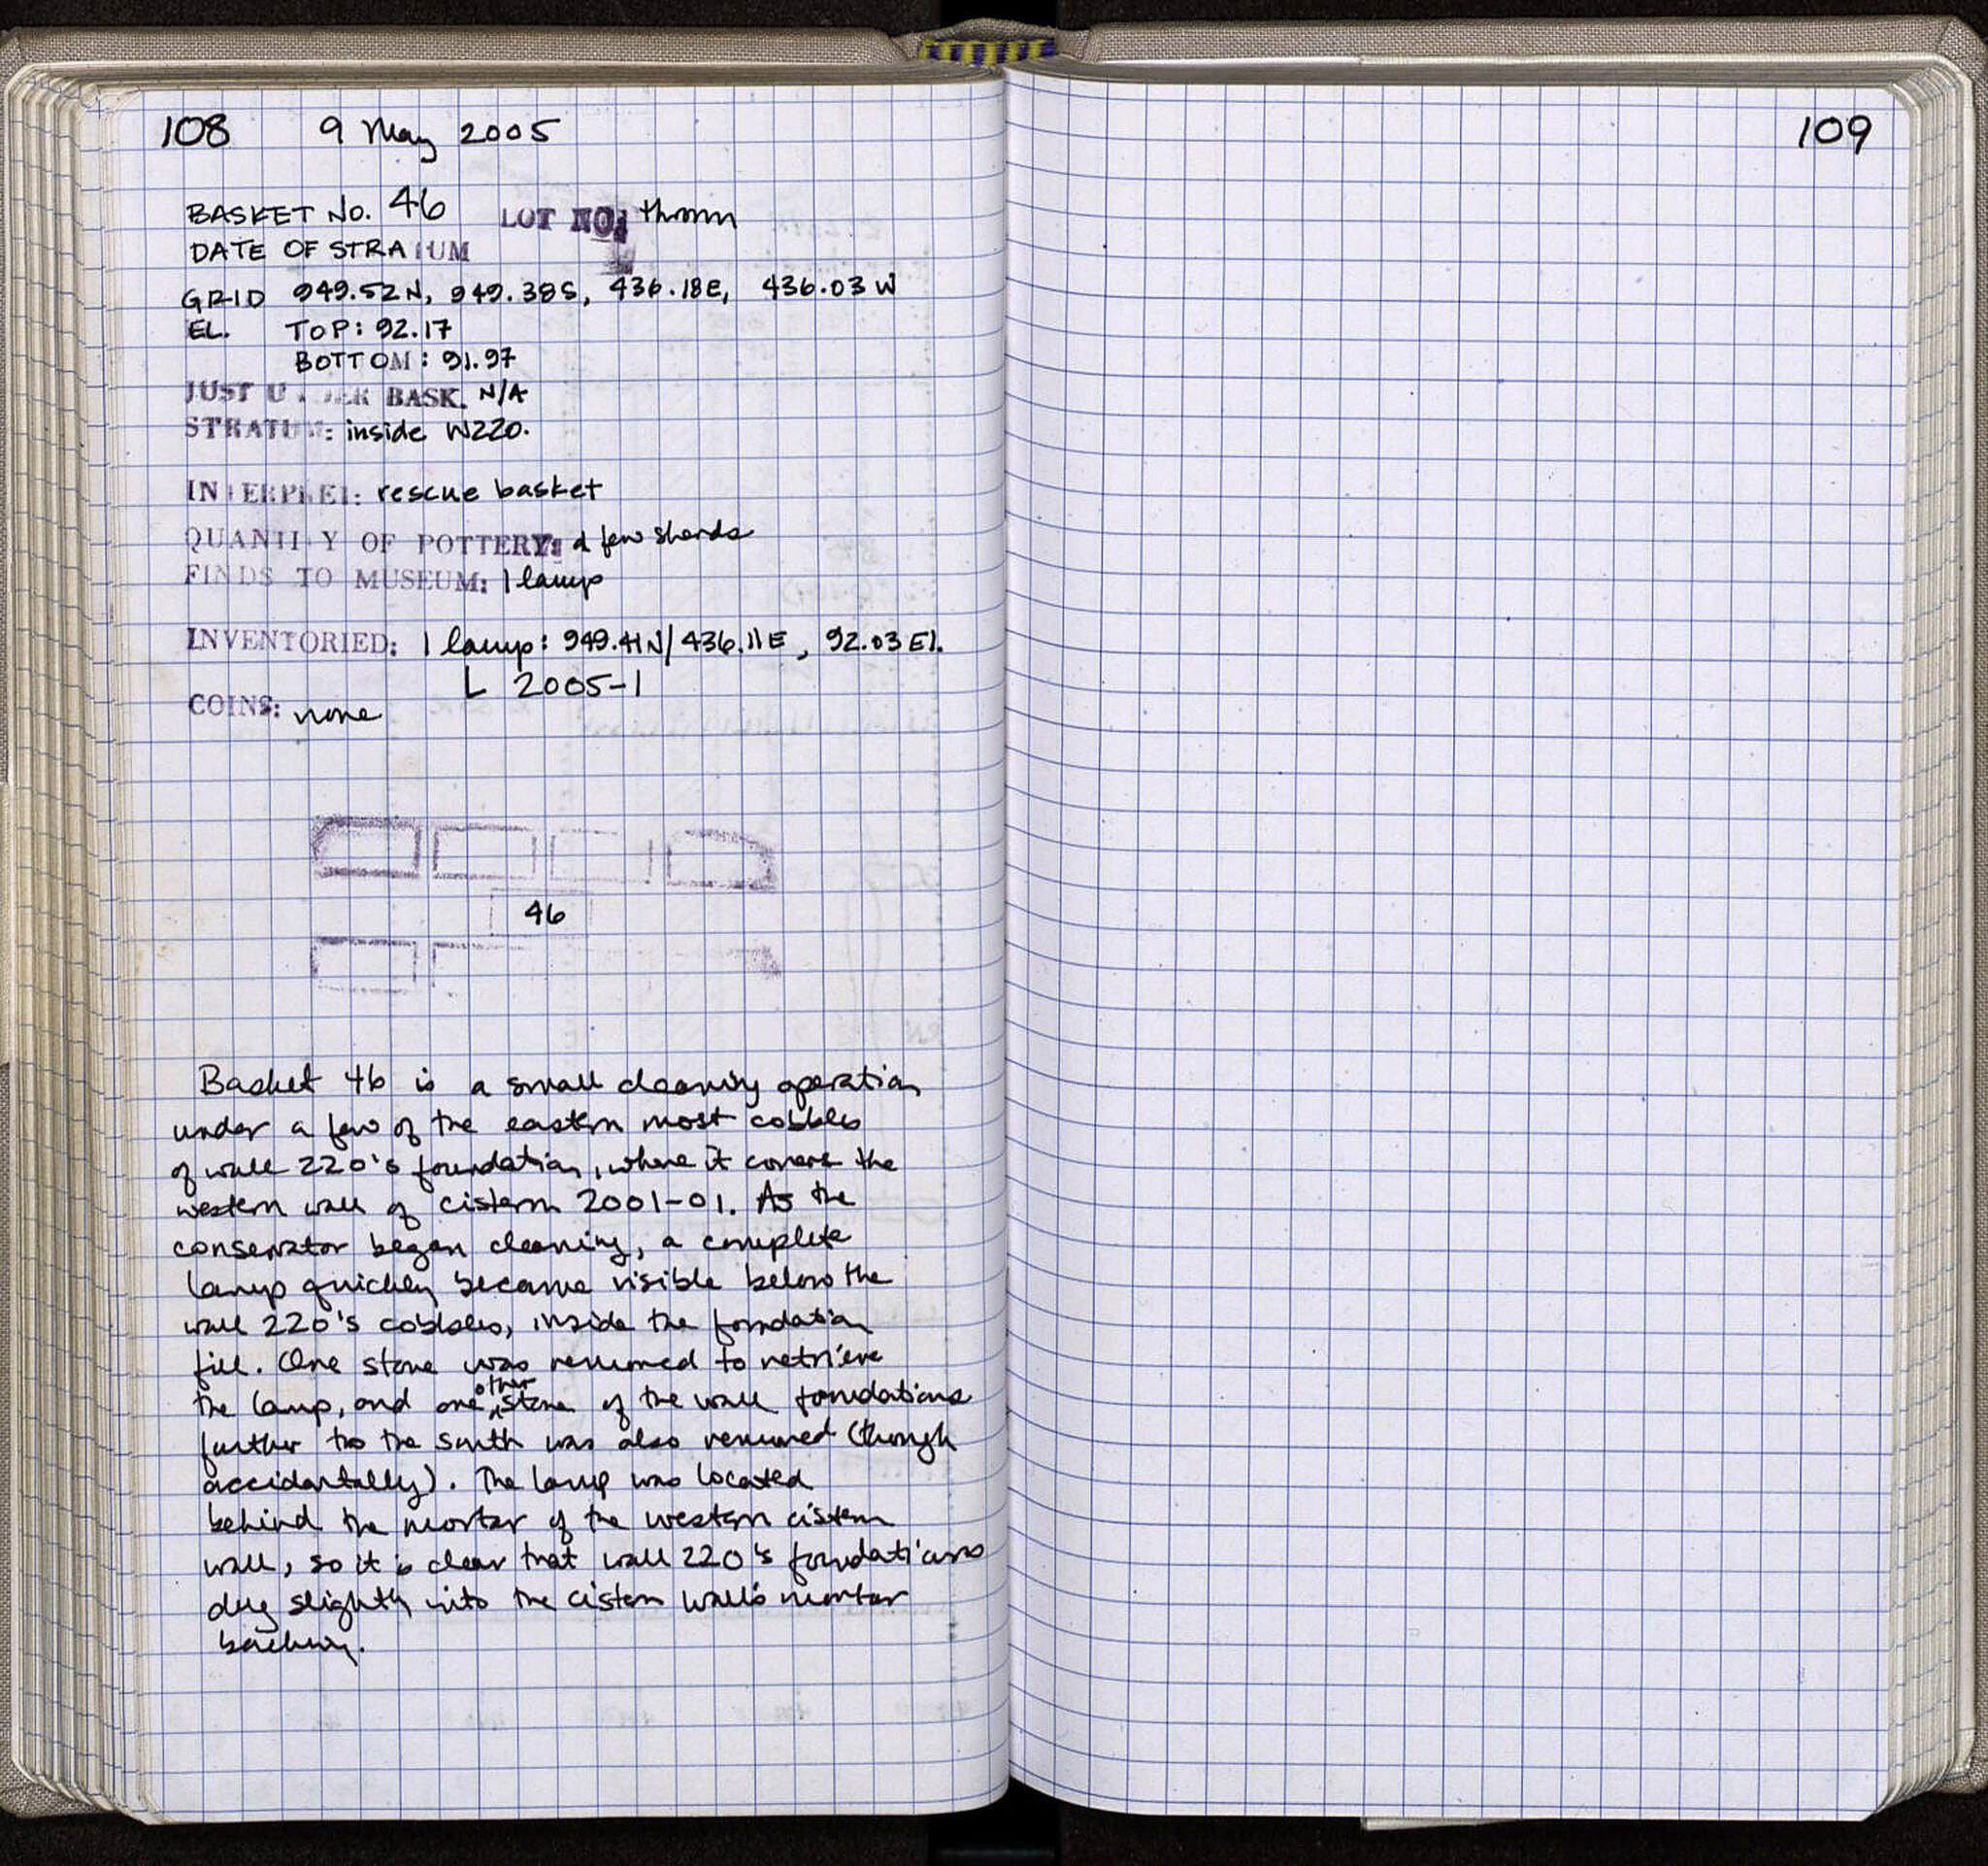 108 9 May 2005
BASKET No. 46 LOT NO: thrown
DATE OF STRATUM
GRID 949.52N, 949.38S, 436.18E, 436.03W
EL. TOP: 92.17
BOTTOM: 91.97
JUST UNDER BASK. N/A
STRATUM: inside W220.
INTERPRET: rescue basket
QUANTITY OF POTTERY: a few sherds
FINDS TO MUSEUM: 1 lamp
INVENTORIED: 1 lamp: 949.41N/436.11E, 92.03 El.
L 2005-1
COINS: none
46
Basket 46 is a small cleaning operation
under a few of the eastern most cobbles
of wall 220's foundation, where it covers the
western wall of cistern 2001-01. As the
conservator began cleaning, a complete
lamp quickly became visible below the
wall 220's cobbles, inside the foundation
fill. One stone was removed to retrieve
the lamp, and one other stone of the wall foundations
further to the south was also removed (though
accidentally). The lamp was located
behind the mortar of the western cistern
wall, so it is clear that wall 220's foundations
dug slightly into the cistern wall's mortar
backing.
109